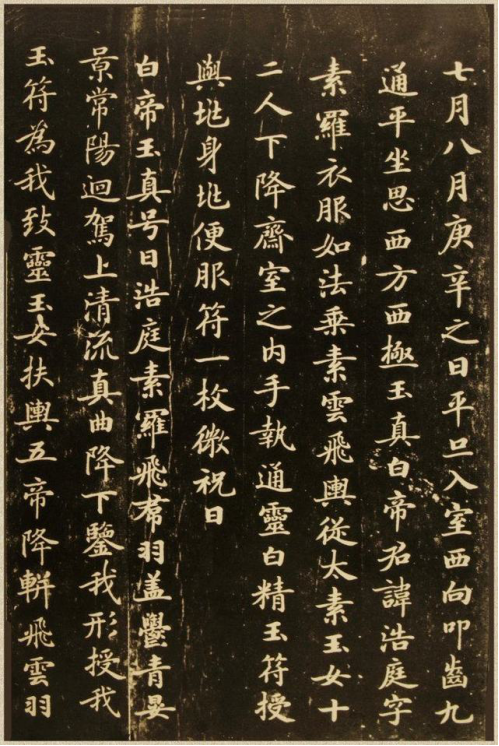 七月八月庚辛之日平旦入室西向叩齒九
通平坐思西方西極玉真白帝君諱浩庭字
素羅衣服如法乘素雲飛輿從太素玉女十
二人下降齋室之内手執通靈白精玉符授
與兆身兆便服符一枚微祝曰
白帝玉真号曰浩庭素羅飛帬羽盖欝青晏
景常陽迴駕上清流真曲降下鑒我形授我
玉符為我致靈玉女扶輿五帝降軿飛雲羽